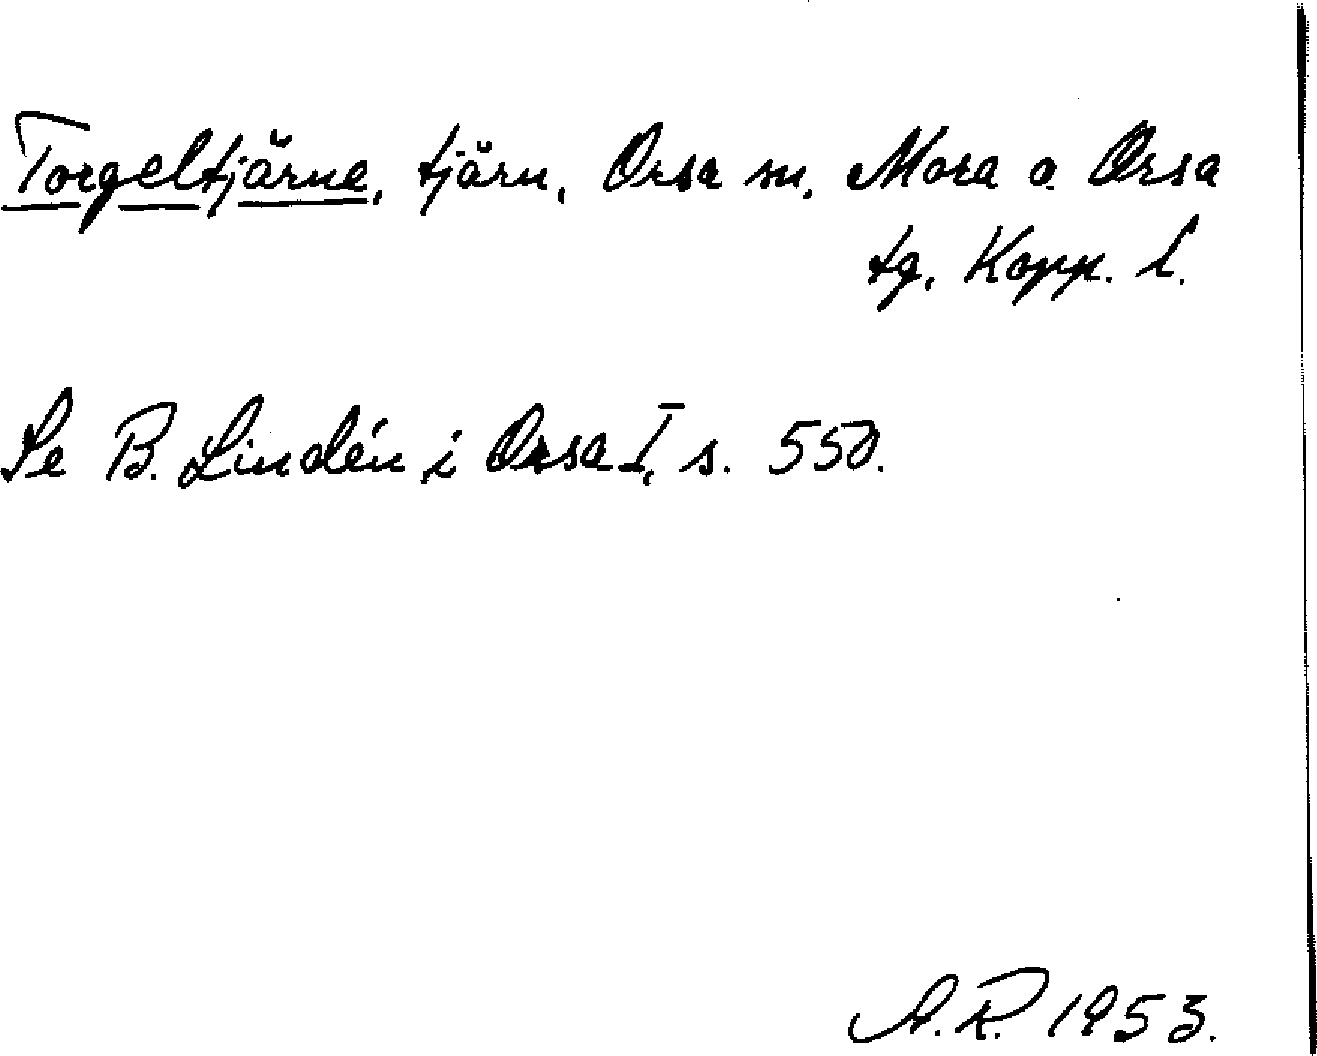 Torgeltjärne, tjärn, Orsa sn. Mora o. Orsa
tg, Kopp. l.
Se B. Lindén i Orsa I, s. 550.
A.R. 1953.